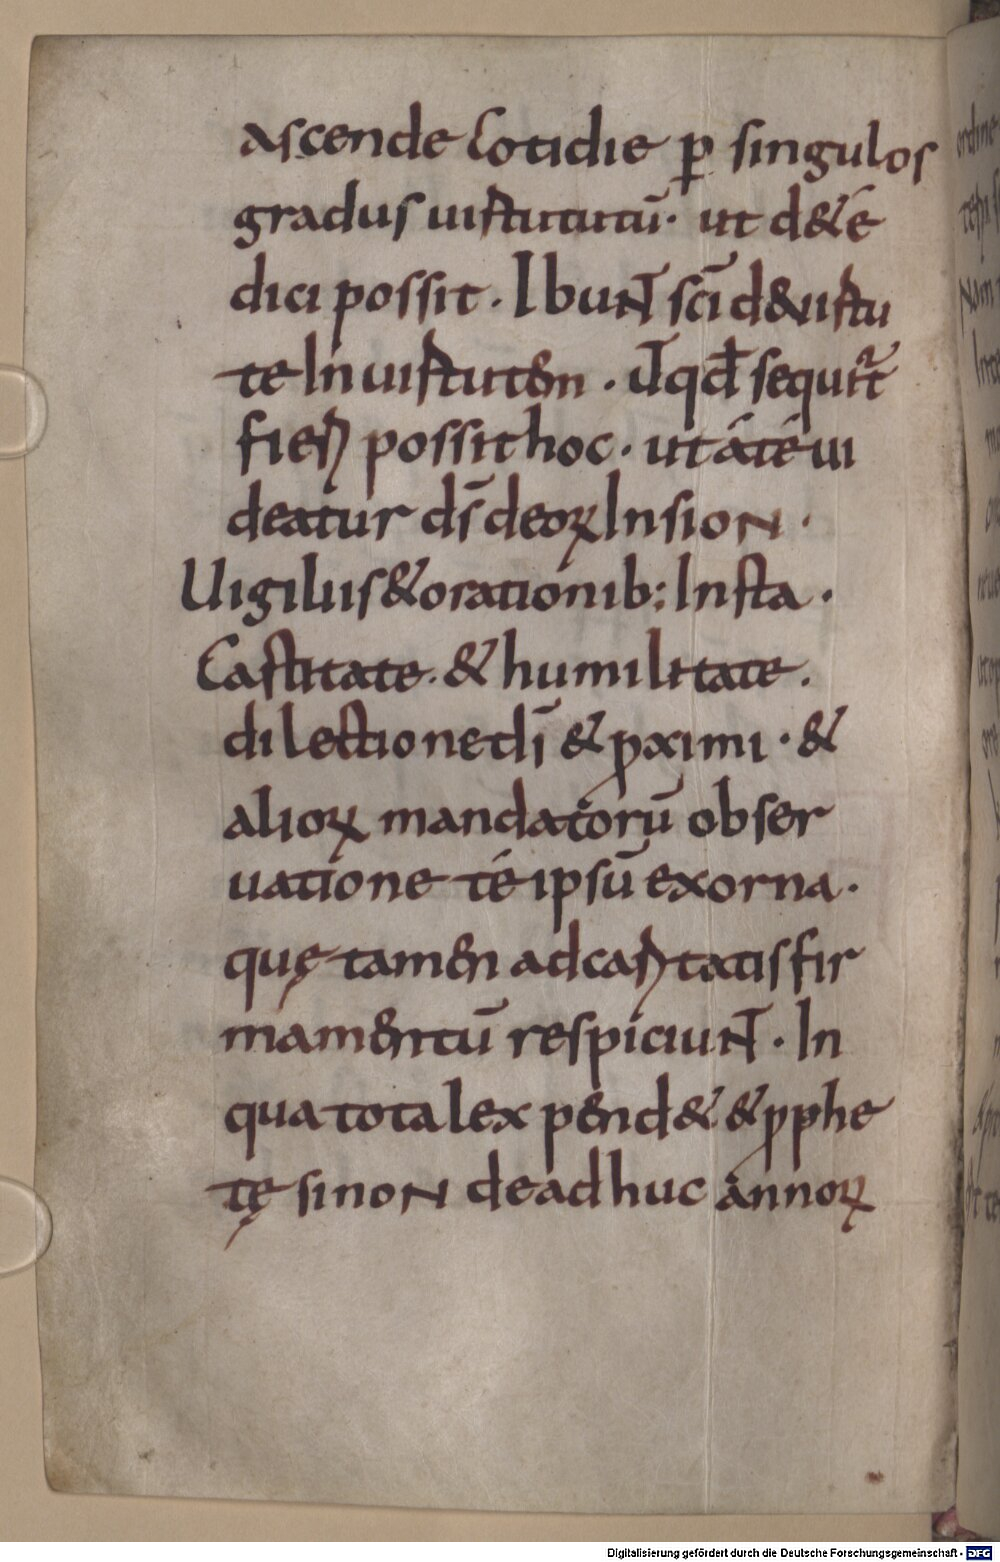 ascende Cotidie ꝑ singulos
gradus uirtututū· ut d&é
dici possit· IbuNT̄ sc̄i d&uirtu
te In uirtutem · Ut̄ qđ sequit᷑
fieri possit hoc· ut áté ui
deatur ds̄ deoꝝ In sioN ·
Uigiliis & orationib: Insta ·
Castitate· & humilitate·
dilectione dī & ꝓximi · &
alioꝝ mandatorū obser
uatione té ipsū exorna ·
quę tamen ad caritatis fir
mamentū respiciuNT̄ · In
qua tota lex pend& & ꝓphe
tę si noN de adhuc annoꝝ
Digitalisierung gefördert durch die Deutsche Forschungsgemeinschaft - DFG